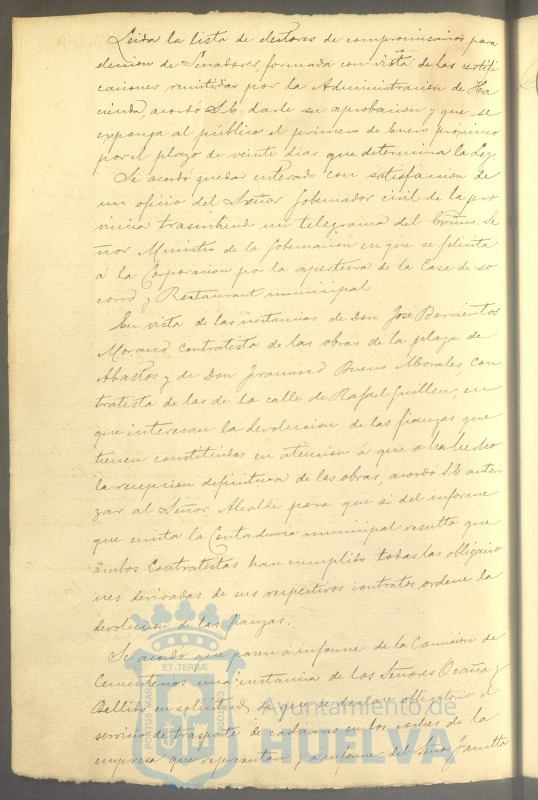 Leida la lista de electores de compromisarios para
elección de Senadores formada con vista de las certifi
caciones remitidas por la Administracion de Ha
cienda, acordó S.E. darle su aprobacion y que se
exponga al público el primero de Enero próximo
por el plazo de veinte dias que determina la Ley.
Se acordó quedar enterado con satisfaccion de
un oficio del Señor Gobernador civil de la pro
vincia trascribiendo un telegrama del Excmo. Se
ñor Ministro de la Gobernacion en que se felicita
á la Corporacion por la apertura de la Casa de so
corro y Restaurant municipal
En vista de las instancias de Don José Barrientos
Morano, contratista de las obras de la plaza de
Abastos y de Don Francisco Bueno Morales, con
tratista de las de la calle de Rafael Guillen, en
que interesan la devolucion de las fianzas que
tienen constituidas en atencion á que se ha hecho
la recepcion definitiva de las obras, acordó S.E. autori
zar al Señor Alcalde para que si del informe
que emita la Contaduría municipal resulta que
ambos Contratistas han cumplido todas las obligacio
nes derivadas de sus respectivos contratos, ordene la
devolucion de las fianzas.
Se acordó que pasen á informe de la Comision de
Cementerios una instancia de los Señores Ocaña y
Bellido en solicitud de que se declare obligatorio el
servicio de trasporte de cadáveres en los coches de la
empresa que representan y á informe del Señor
PORTUS MARIS ET TERRÆ CUSTODIA
Ayuntamiento de
HUELVA